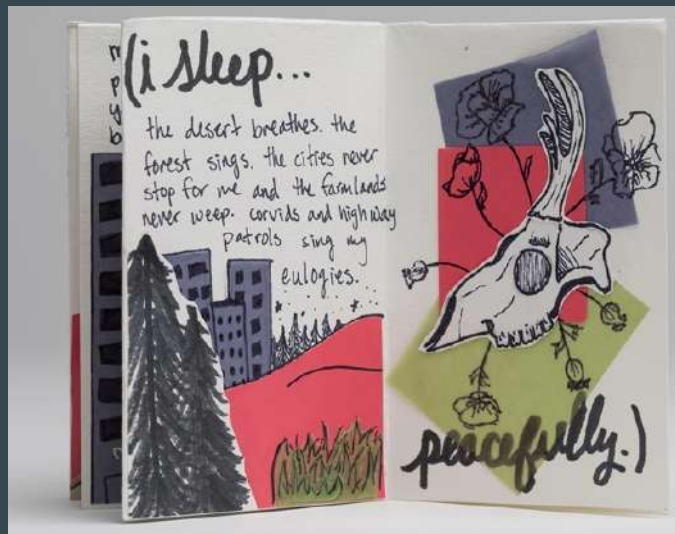 (i sleep...
the desert breathes. the
forest sings. the cities never
stop for me and the farmlands
never weep. corvids and highway
patrols sing my
eulogies.
peacefully.)